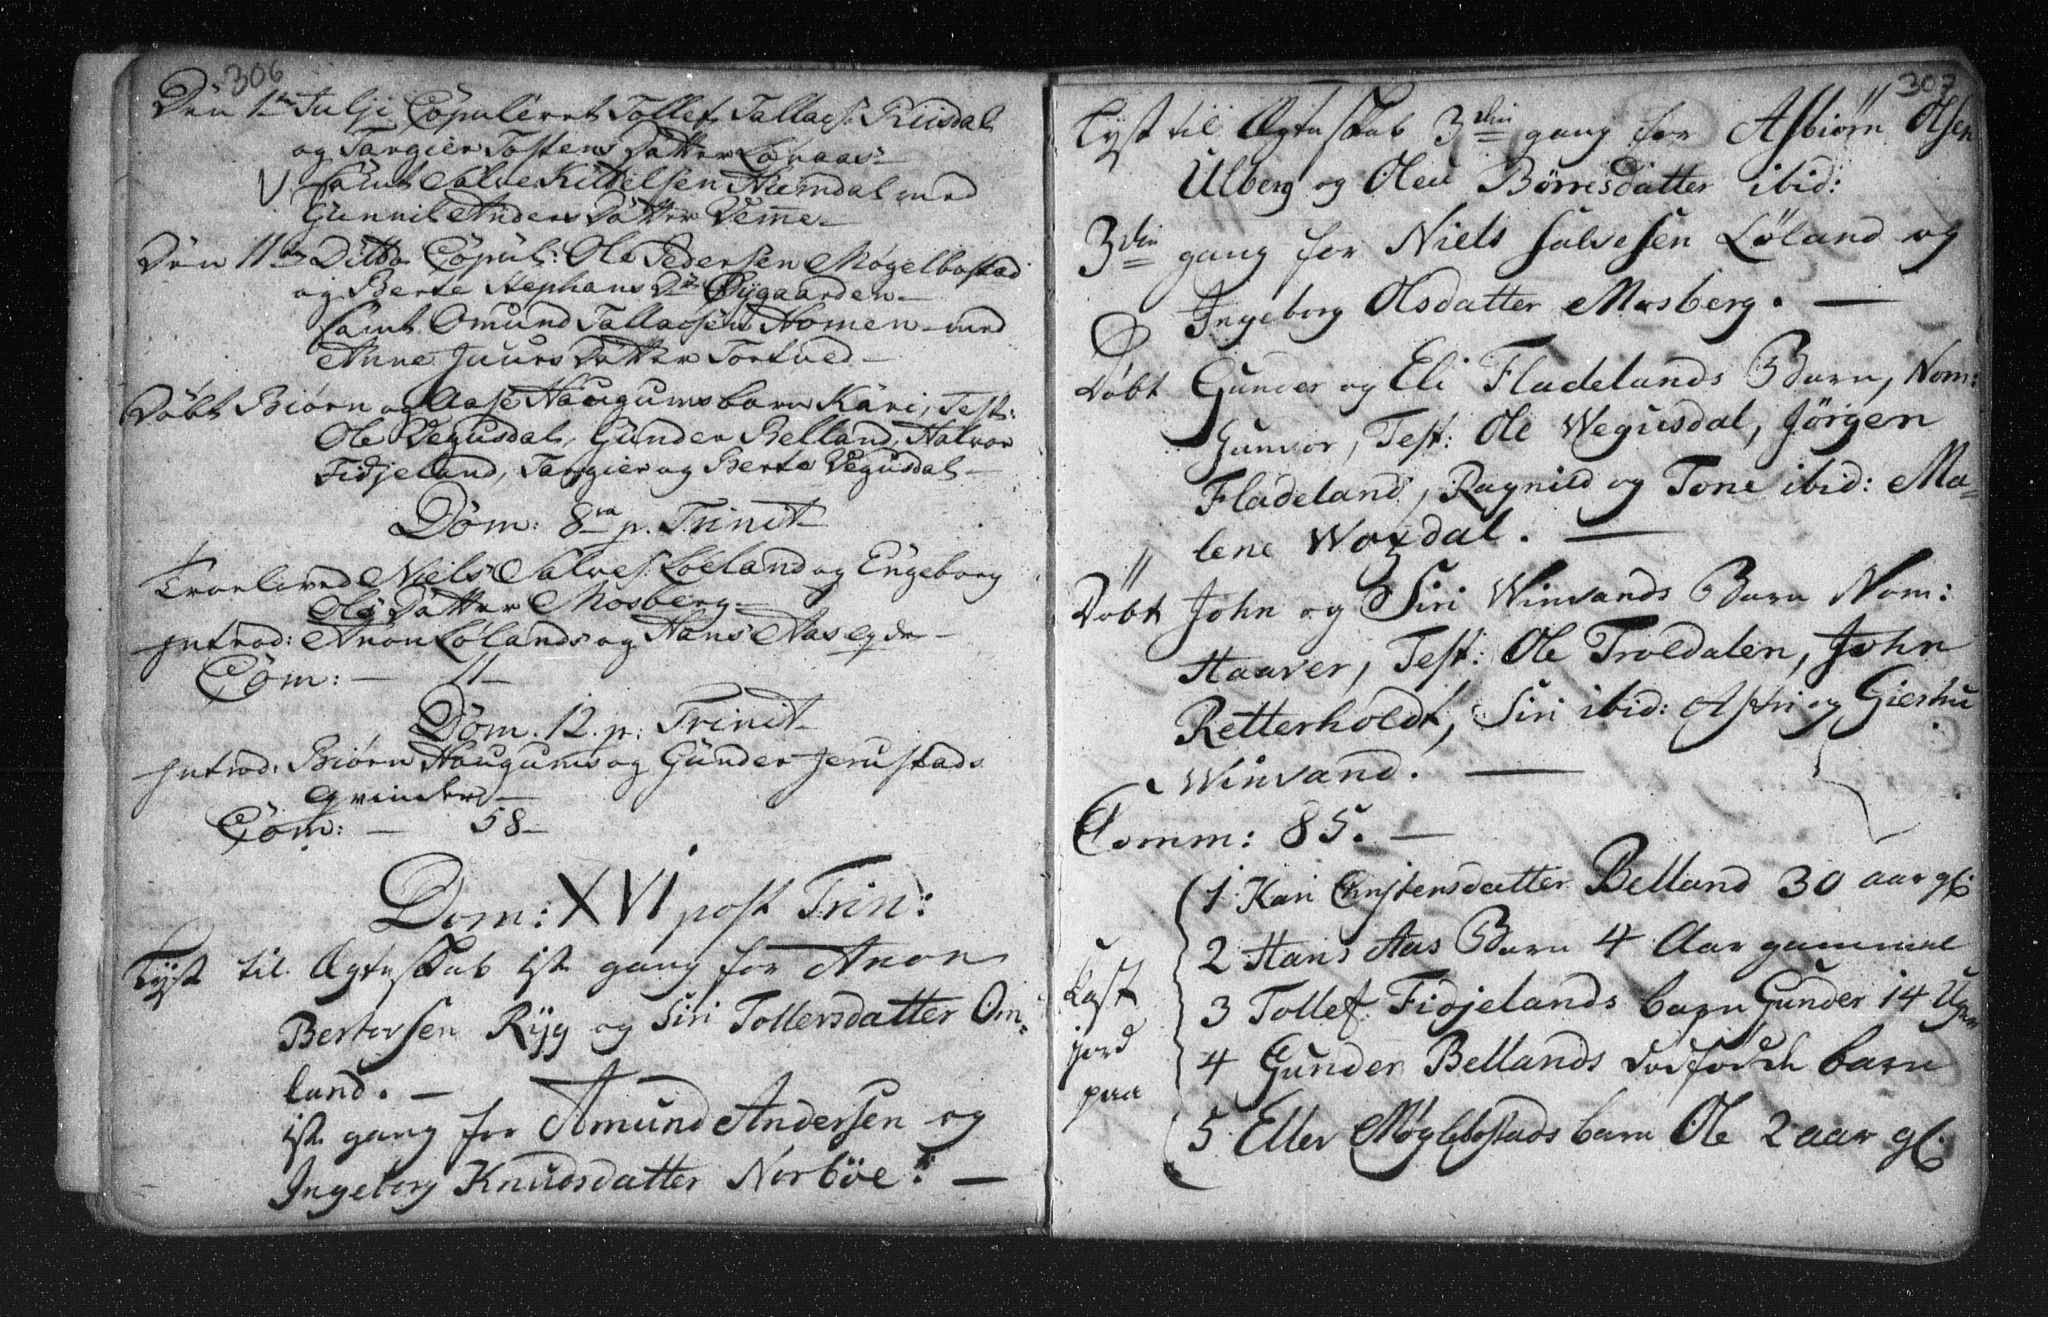 306
Den 1te Julji Copuleret Tollef Tallacs. Riisdal
og Targier Tostens Datter Lønaas
Samt Salve Kittelsen Hiemdal med
Gunnil Anders Datter Vemme
Den 11te Ditto Copul: Ole Pedersen Møgelbostad
og Berte Stephans D. Øygaarden
Samt Omund Tallacsen Homen med
Anne Juurs Datter Tortved
Døbt Biørn og Aase Haugums barn Kari, Test:
Ole Vegusdal, Gunder Belland, Halvor
Fidjeland, Targier og Berte Vegusdal
Dom: 8va p. Trinit
Troeloved Niels Salves. Løeland og Engeborg
Ols Datter Mosberg
Introd: Anon Lølands og Hans Aas
Com: — 11 —
Dom. 12. p: Trinit
Introd: Biørn Haugums og Gunder Jerustads
qvinder
Com: — 58 —
Dom: XVI post Trin:
Lyst til Ægteskab 1ste gang for Anon
Bertorsen Ryg og Siri Tollersdatter Om-
land. —
1ste gang for Amund Andersen og
Ingeborg Knudsdatter Norbøe. —
307
Lyst til Ægteskab 3die gang for Asbiørn Olsen
Ulberg og Oleu Børresdatter ibid:
3die gang for Niels Salvesen Løland og
Ingeborg Olsdatter Mosberg. —
Døbt Gunder og Eli Fladelands Barn, Nom:
Gunvor, Test: Ole Wegusdal, Jörgen
Fladeland, Ragnild og Tone ibid: Ma-
lene Woxdal. —
Døbt John og Siri Winvands Barn Nom:
Haaver, Test: Ole Troedalen, John
Retterholdt, Siri ibid: Astri og Giertru
Winvand. —
Comm: 85. —
1 Kari Christensdatter Belland 30 aar gl.
2 Hans Aas Barn 4 Aar gammel
Kast 3 Tollef Fidjelands barn Gunder 14 Uger
jord 4 Gunder Bellands dødfødde barn
paa 5 Eller Møglebostads barn Ole 2 aar gl.